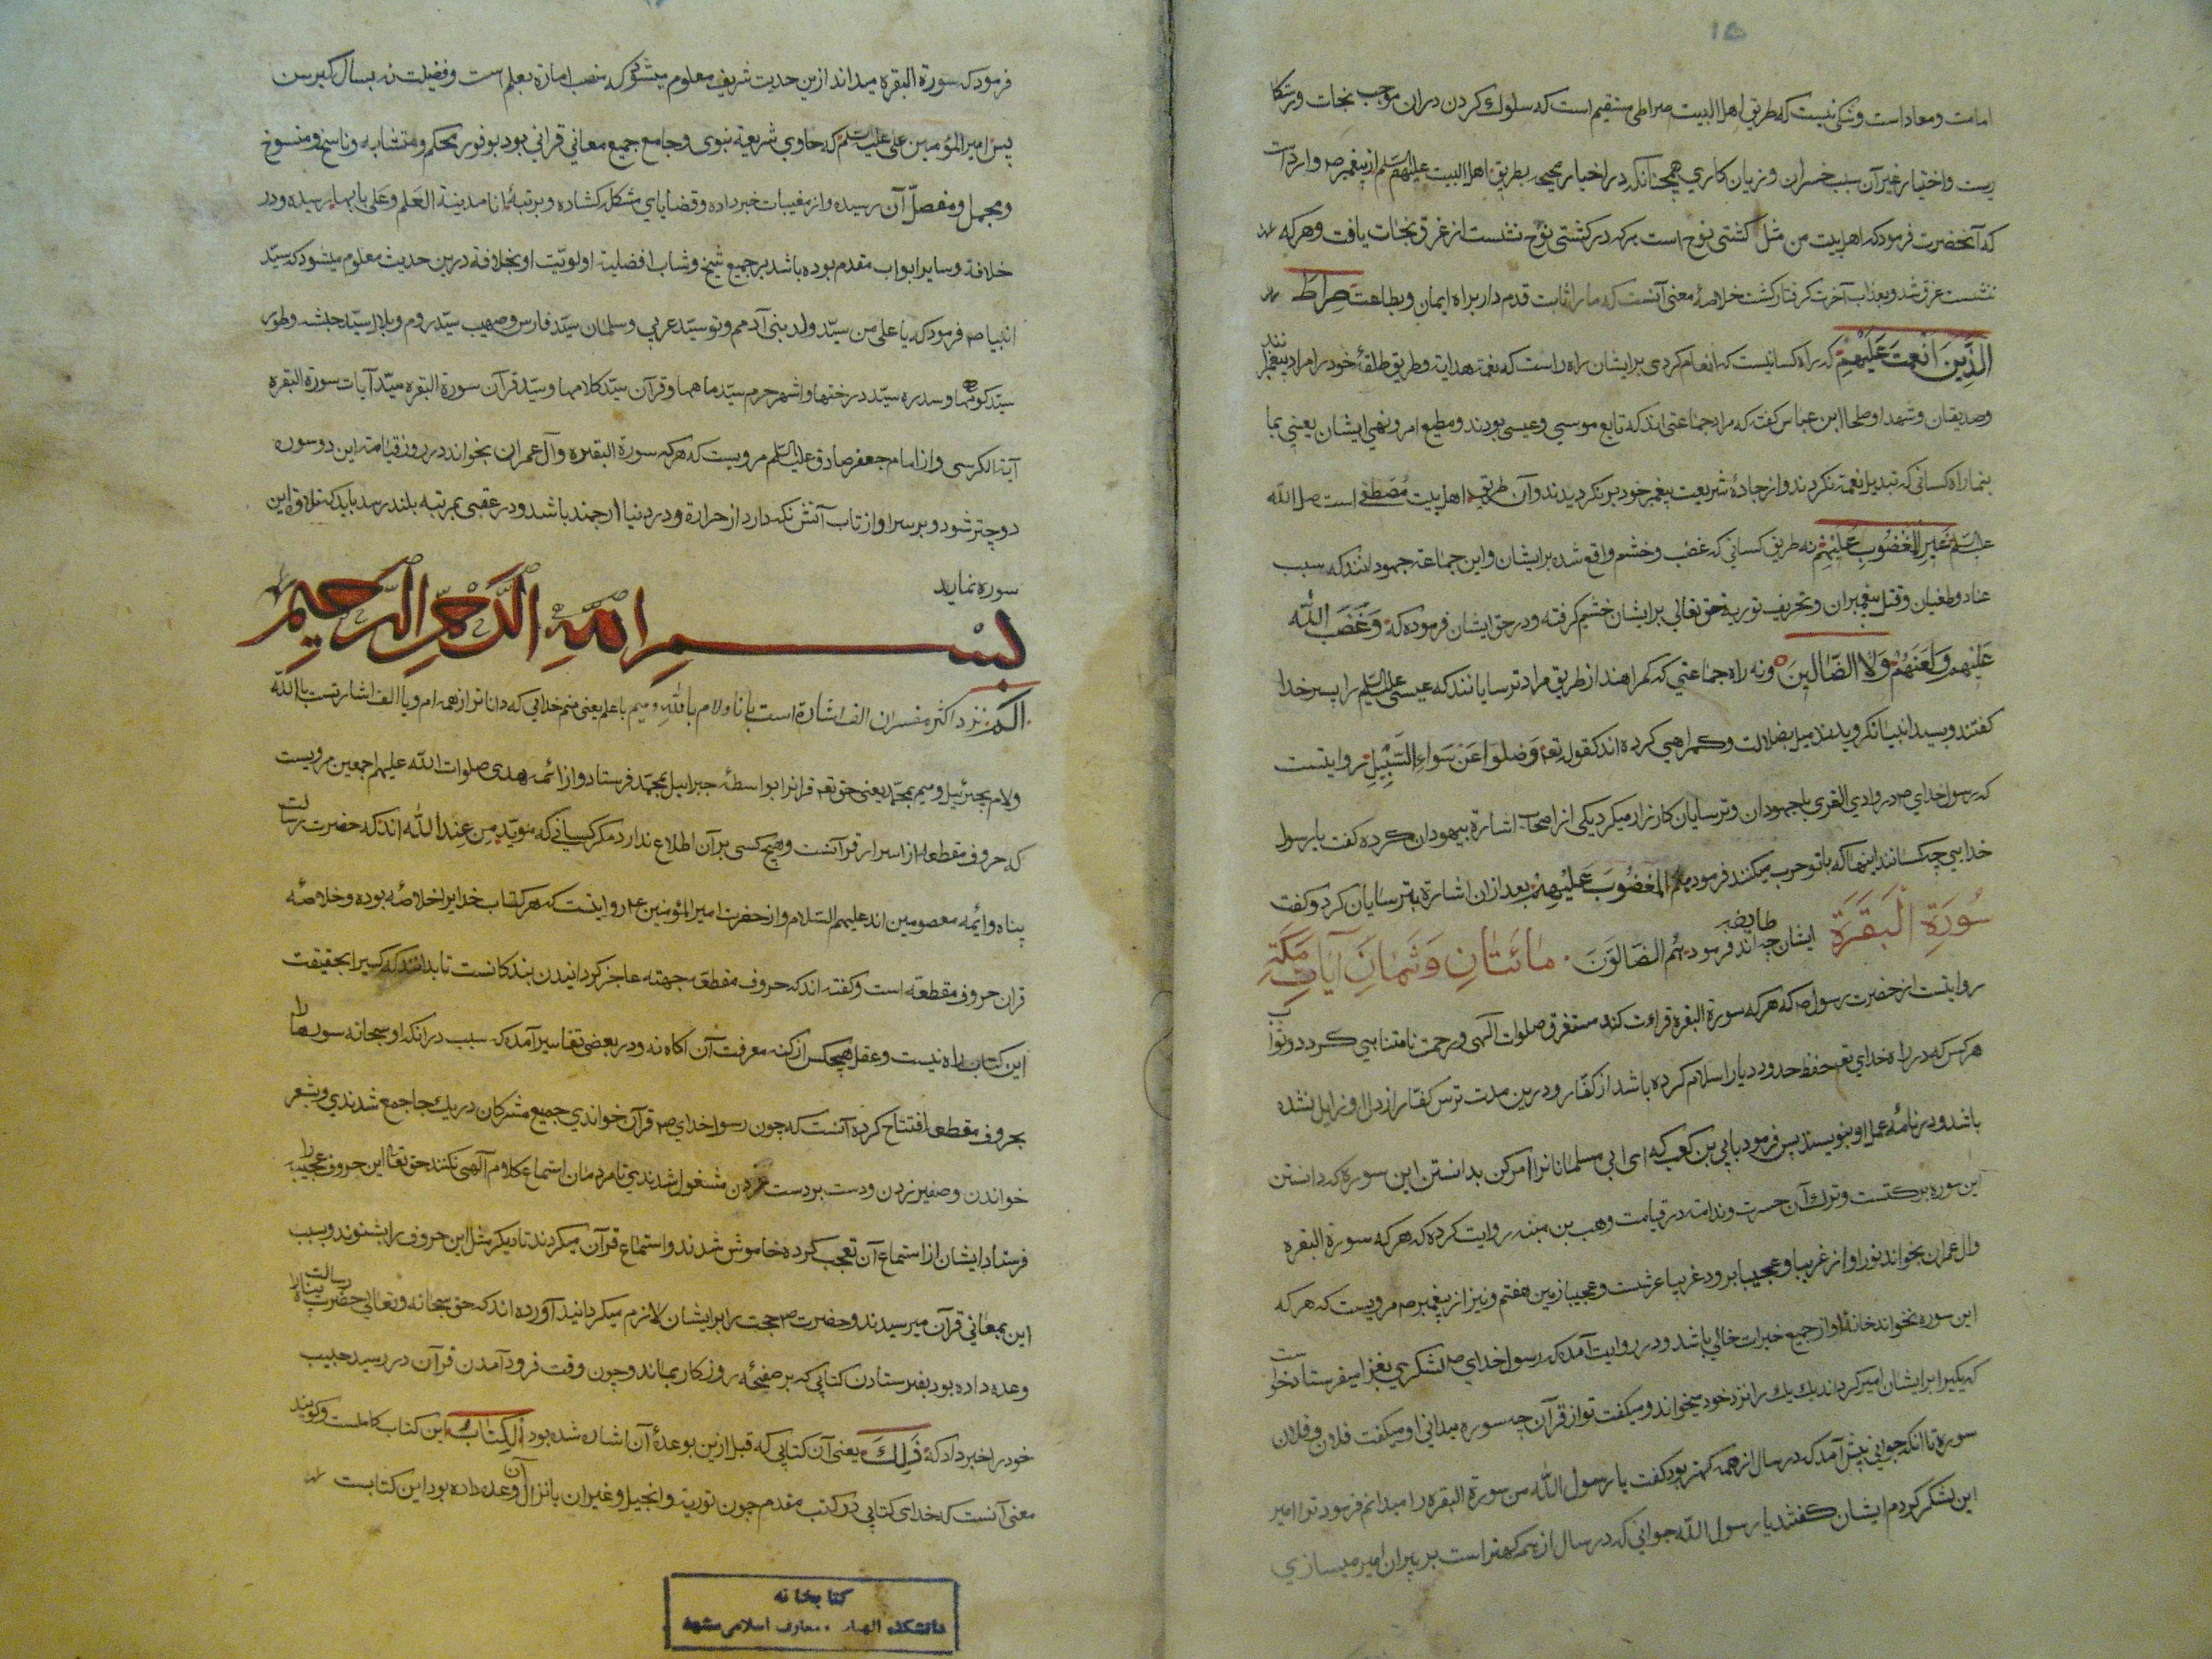 ۱۵
امامت و معاد است و شکی نیست که طریق اهل البیت صراطی مستقیم است که سلوک کردن در آن موجب نجات و رستکا
ریست و اختیار غیر آن سبب خسران و زیان کاری همچنانکه در اخبار صحیحه بطریق اهل البیت علیهم السلم از پیغمبر ص وارد است
که آنحضرت فرمود که اهل بیت من مثل کشتی نوح است هر که در کشتی نوح نشست از غرق نجات یافت و هر که
نشست غرق شد و بعذاب آخرت کرفتار کشت خلاصهٔ معنی آنست که ما را ثابت قدم دار براه ایمان و بطاعت صِراطَ
الَّذِینَ اَنْعَمتَ عَلَیْهِمْ که راه کسانیست که انعام کردی بر ایشان راه راست که نعمة هدایة و طریق خود را مراد پیغمبر
و صدیقان و شهدا و صلحا ابن عباس کفت که مراد جماعتی اند که تابع موسی و عیسی بودند و مطیع امر و نهی ایشان یعنی بما
بنما راه کسانی که تبدیل نعمة نکردند و از جادهٔ شریعت پیغمبر خود بر نکردیدند و آن طریق اهل بیت مُصْطفی است صلی الله
علیه السلم غَیرِ المَغضُوبِ عَلَیْهِمْ نه طریق کسانی که غضب و خشم واقع شده بر ایشان و این جماعة جهودانند که سبب
عناد و طغیان و قتل پیغمبران و تحریف توریة حق تعالی بر ایشان خشم کرفته و در حق ایشان فرموده که وَغَضَبَ اللّٰه
عَلَیْهِم وَلَعَنَهُمْ وَلَا الضّٰالینَ و نه راه جماعتی که کمراهند از طریق مراد ترسایانند که عیسی علیه السلم را پسر خدا
کفتند و بسید انبیا نکرویدند میل بضلالت و کمراهی کرده اند کقوله تع وَضَلّوا عَنْ سَواءِ السَّبِیْلِ روایتست
که رسول خدای ص در وادی القری با جهودان و ترسایان کارزار میکرد یکی از اصحاب اشارة بیهودان کرده کفت یا رسول
خدا یی چه کسانند اینها که با تو حرب میکنند فرمود هم المَغضُوبَ عَلَیْهِمْ بعد از آن اشارة بترسایان کرد و کفت
سُورَةِ الْبَقَرَةِ ایشان چه طایفه اند فرمود هُم الضَّالوّنَ مٰائَتٰانِ وَثَمٰانِ آیٰات مَکّیّة
روایتست از حضرت رسول ص که هر که سورة البقره قراءت کند مستغرق صلوات الهی و رحمت نامتناهی کردد و ثواب
هر کس که در راه خدای تع حفظ حدود دیار اسلام کرده باشد از کفار و درین مدت ترس کفار از دل او زایل نشده
باشد و در نامهٔ عمل او بنویسند پس فرمود بابی بن کعب که ای ابی مسلمانانرا امر کن بدانستن این سوره که دانستن
این سوره برکتست و ترک آن حسرت و ندامة در قیامت وهب بن منبه روایت کرده که هر که سورة البقره
و ال عمران بخواند نور او از غریبا و عجیبا برود غریبا عرشست و عجیبا زمین هفتم و نیز از پیغمبر ص مرویست که هر که
این سوره نخواند خانهٔ او از جمیع خیرات خالی باشد و در روایت آمده که رسول خدای ص لشکری بغزا میفرستاد خواست
که یکی را بر ایشان امیر کرداند یک یک را نزد خود میخواند و میکفت تو از قرآن چه سوره میدانی او میکفت فلان و فلان
سوره تا انکه جوانی پیش آمد که در سال از همه کمتر بود کفت یا رسول الله من سورة البقره را میدانم فرمود تو را امیر
این لشکر کردم ایشان کفتند یا رسول الله جوانی که در سال از همه کهتر است بر پیران امیر میسازی
فرمود که سورة البقره میداند ازین حدیث شریف معلوم میشود که منصب امارة بعلم است و فضیلت نه بسال کبر سن
پس امیر المؤمنین علی علیه السلم که حاوی شریعة نبوی و جامع جمیع معانی قرانی بود بوفور محکم و متشابه و ناسخ و منسوخ
و مجمل و مفصل آن رسیده و از مغیبات خبر داده و قضایای مشکل کشاده و برتبهٔ انا مدینة العلم و علی بابها رسیده و در
خلافة و سایر ابواب مقدم بوده باشد بر جمیع شیخ و شاب افضلیة اولویّت او بخلافة درین حدیث معلوم میشود که سیّد
انبیا ص فرمود که یا علی من سیّد ولد بنی آدمم و تو سیّد عربی و سلمان سیّد فارس و صهیب سیّد روم و بلال سیّد حبشه و طور
سیّد کوهها و سدره سیّد درختها و اشهر حرم سیّد ماهها و قرآن سیّد کلامها و سیّد قرآن سورة البقره سیّد آیات سورة البقره
آیة الکرسی و از امام جعفر صادق علیه السلم مرویست که هر که سورة البقره و آل عمران بخواند در روز قیامة این دو سوره
دو چتر شود و بر سر او از تاب آتش نکه دارد از حرارة و در دنیا ارجمند باشد و در عقبی بمرتبه بلند رسد باید که تلاوة این
سوره نماید
بِسْمِ اللّٰهِ الرَّحْمٰنِ الرَّحِیمِ
الٓمٓ نزد اکثر مفسران الف اشارة است بانا و لام بالله و میم باعلم یعنی منم خدایی که داناتر از همه ام و یا الف اشارتست بالله
و لام بجبرئیل و میم بمحمّد یعنی حق تع قرانرا بواسطهٔ جبرائیل بمحمد فرستاد و از ائمه هدی صلوات الله علیهم اجمعین مرویست
که حروف مقطعه از اسرار قرآنست و هیچ کسی بر آن اطلاع ندارد مکر کسانی که مؤیّد مِن عِند اللّٰه اند که حضرت رسالت
پناه و ائمه معصومین اند علیهم السلام و از حضرت امیر المؤمنین ع روایتست که هر کتاب خدایرا خلاصه بوده و خلاصه
قران حروف مقطعة است و کفته اند که حروف مقطعه جهته عاجز کردانیدن بندکانست تا بدانند که کسیرا بحقیقت
این کتاب راه نیست و عقل هیچکس از کنه معرفت آن اکاه نه و در بعضی تفاسیر آمده که سبب در آنکه او سبحانه سورها را
بحروف مقطعه افتتاح کرده آنست که چون رسول خدای ص قرآن خواندی جمیع مشرکان در یک جا جمع شدندی و بشعر
خواندن و صفیر زدن و دست بر دست زدن مشغول شدندی تا مردمان استماع کلام الهی نکنند حق تعالی این حروف عجیبه را
فرستاد ایشان از استماع آن تعجب کرده خاموش شدند و استماع قرآن میکردند تا دیکر مثل این حروف را بشنوند و بسبب
این بمعانی قرآن میرسیدند و حضرت ص حجت را بر ایشان لازم میکردانید آورده اند که حق سبحانه و تعالی حضرت رسالت پناه را
وعده داده بود بفرستادن کتابی که بر صفیحهٔ روزکار بماند و چون وقت فرود آمدن قرآن در رسید حبیب
خود را خبر داد که ذٰلِکَ یعنی آن کتابی که قبل ازین بوعدهٔ آن اشاره شده بود الکِتابُ این کتاب کاملست و کویند
معنی آنست که خدای کتابی در کتب مقدم چون توریة و انجیل و غیران بانزال آن وعده داده بود این کتابست
کتابخانه
دانشکده الهیات و معارف اسلامی مشهد